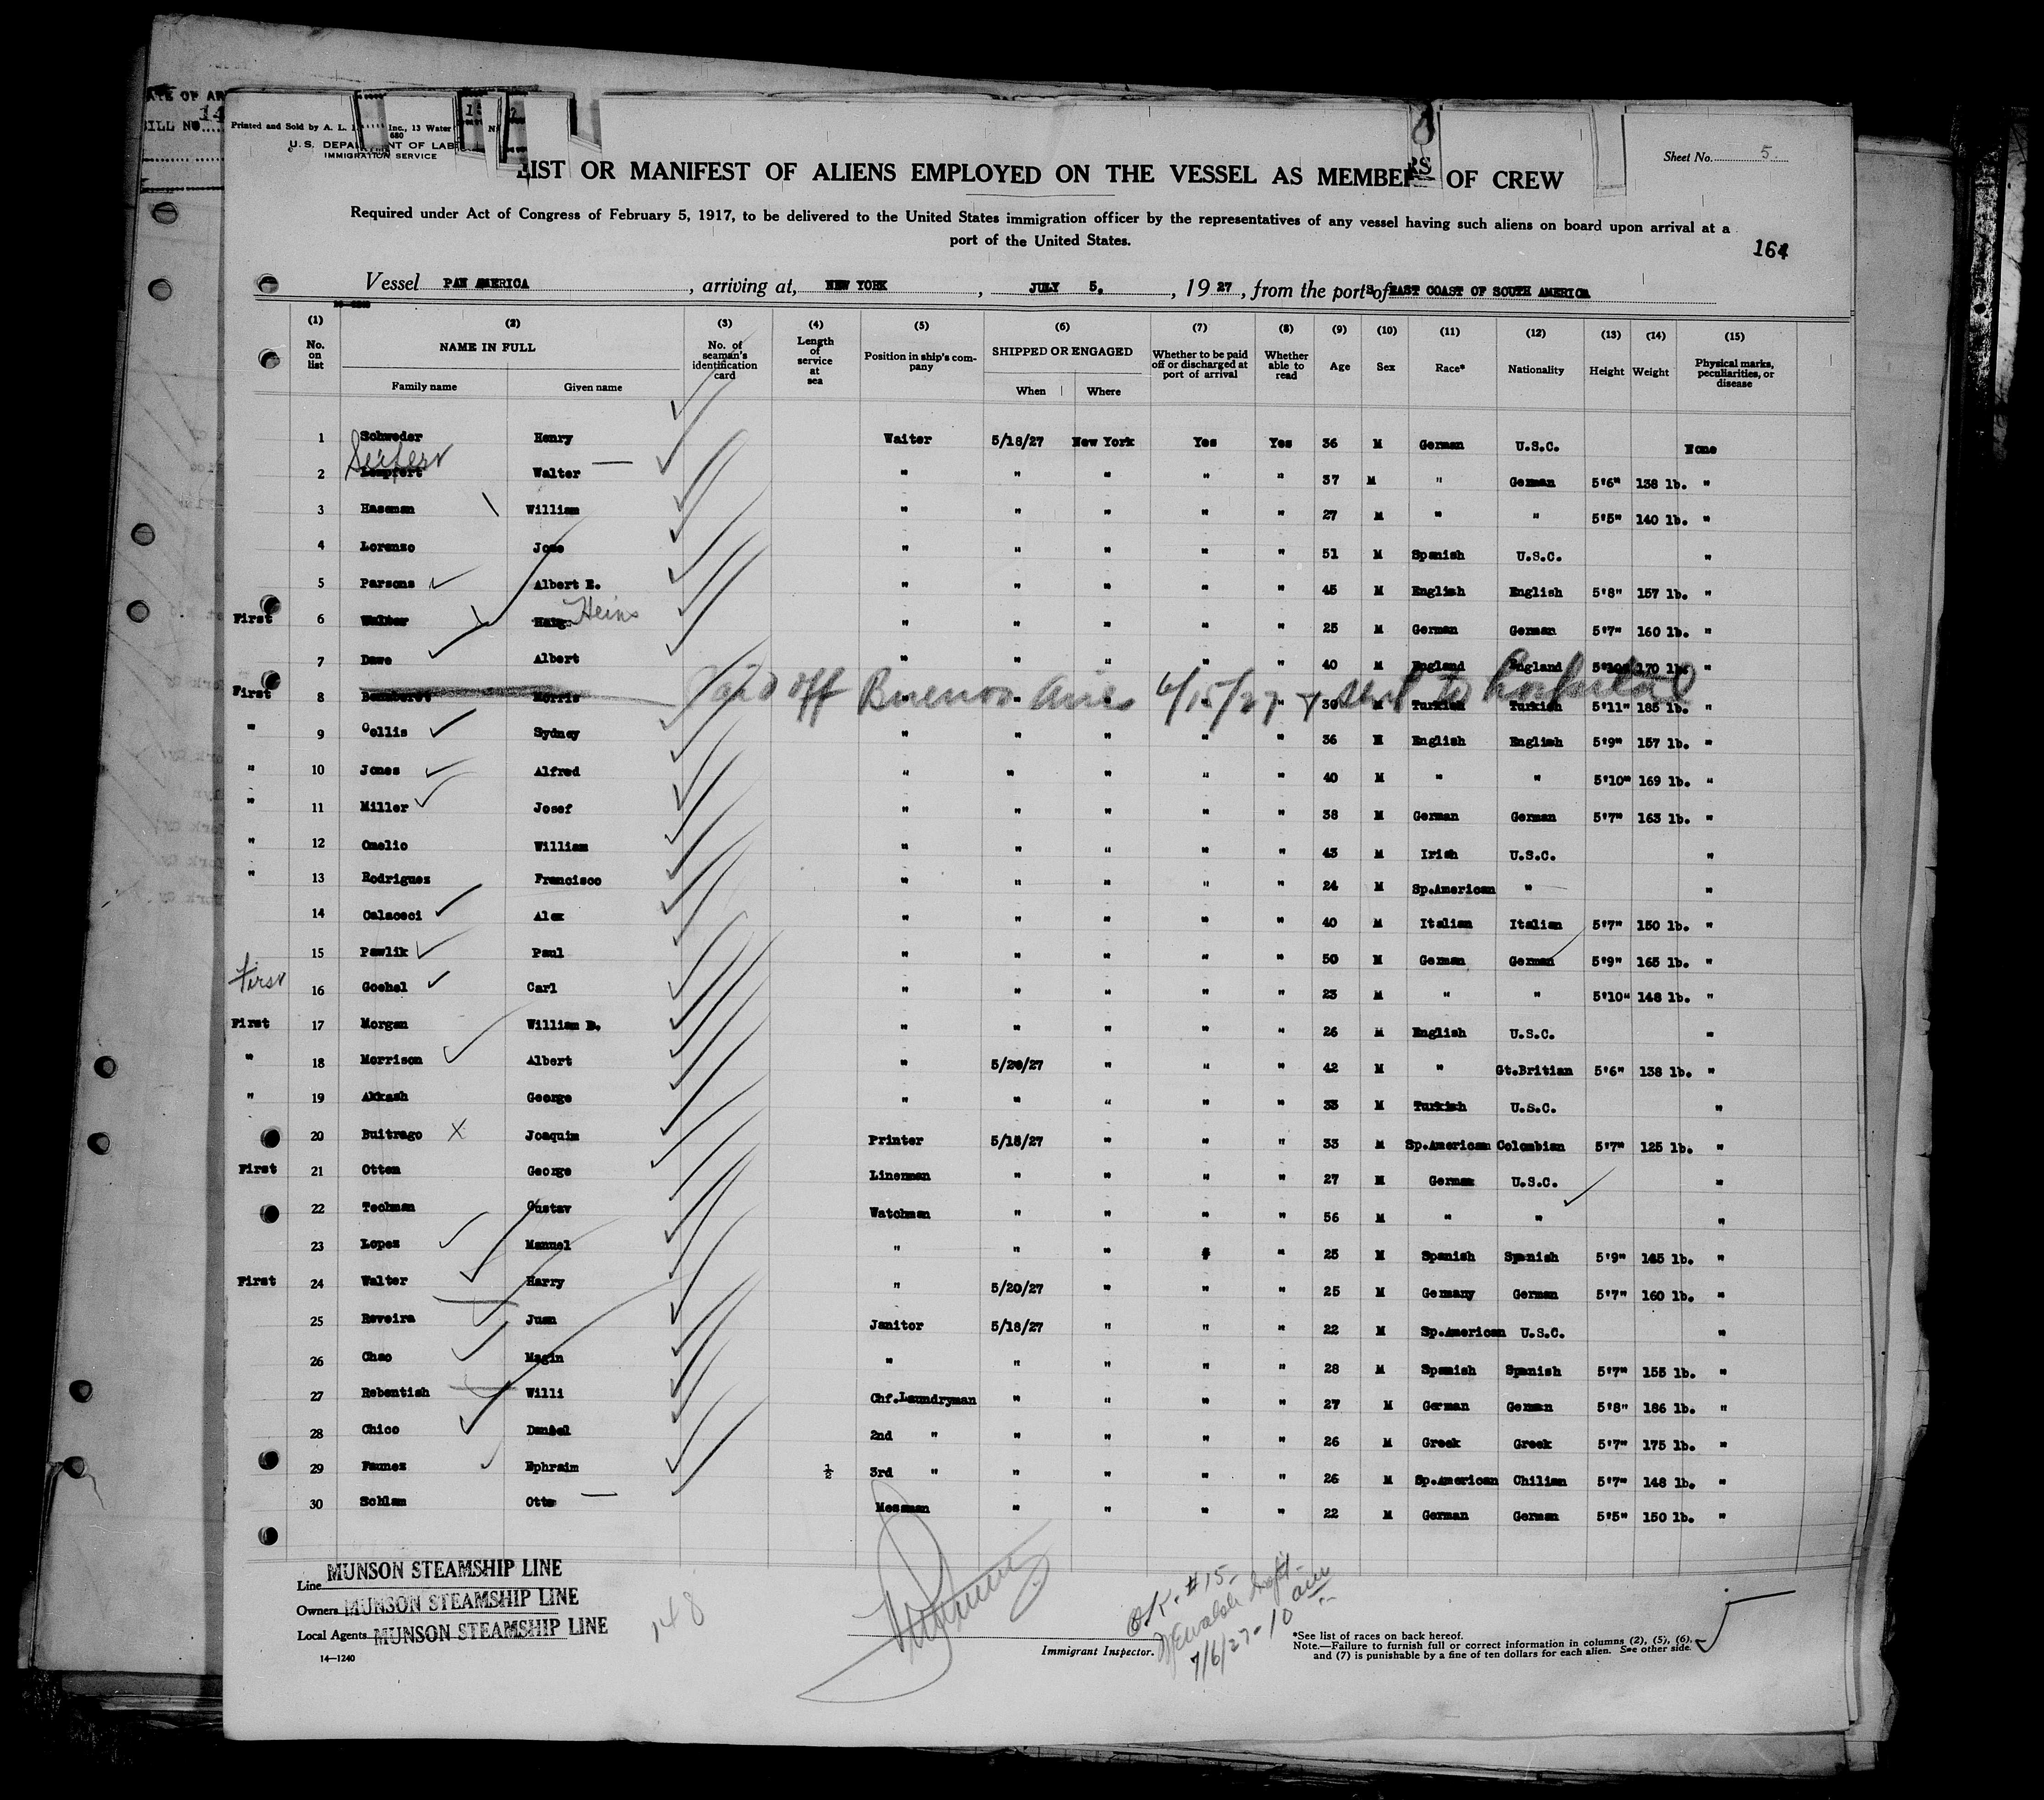 Printed and Sold by A. L. Inc., 13 Water
680
U. S. DEPA NT OF LAB
IMMIGRATION SERVICE
Sheet No. 5
LIST OR MANIFEST OF ALIENS EMPLOYED ON THE VESSEL AS MEMBERS OF CREW
Required under Act of Congress of February 5, 1917, to be delivered to the United States immigration officer by the representatives of any vessel having such aliens on board upon arrival at a
port of the United States.
164
Vessel PAN AMERICA, arriving at, NEW YORK, JULY 5., 1927, from the ports of EAST COAST OF SOUTH AMERICA
(1) (2) (3) (4) (5) (6) (7) (8) (9) (10) (11) (12) (13) (14) (15)
No. on list NAME IN FULL Family name Given name No. of seaman's identification card Length of service at sea Position in ship's company SHIPPED OR ENGAGED When Where Whether to be paid off or discharged at port of arrival Whether able to read Age Sex Race* Nationality Height Weight Physical marks, peculiarities, or disease
1 Schweder Henry Waiter 5/18/27 New York Yes Yes 36 M German U.S.C. None
Seifert
2 Lempfert Walter " " " " " 37 M " German 5'6" 138 lb. "
3 Haseman William " " " " " 27 M " " 5'5" 140 lb. "
4 Lorenzo Jose " " " " " 51 M Spanish U.S.C. "
5 Parsons Albert E. " " " " " 45 M English English 5'8" 157 lb. "
First 6 Walter Heins " " " " " 25 M German German 5'7" 160 lb. "
7 Dawe Albert " " " " " 40 M England England 5'10" 170 lb. "
First 8 Morris " " " " " 30 M Turkish Turkish 5'11" 185 lb. "
Paid off Buenos Aires 6/15/27 & sent to hospital
" 9 Collis Sydney " " " " " 36 M English English 5'9" 157 lb. "
" 10 Jones Alfred " " " " " 40 M " " 5'10" 169 lb. "
" 11 Miller Josef " " " " " 38 M German German 5'7" 163 lb. "
" 12 Omelio William " " " " " 43 M Irish U.S.C. "
" 13 Rodriguez Francisco " " " " " 24 M Sp.American " "
14 Calaceci Alex " " " " " 40 M Italian Italian 5'7" 150 lb. "
15 Pawlik Paul " " " " " 50 M German German 5'9" 165 lb. "
First 16 Goehel Carl " " " " " 23 M " " 5'10" 148 lb. "
First 17 Morgan William D. " " " " " 26 M English U.S.C. "
" 18 Morrison Albert " 5/20/27 " " " 42 M " Gt.Britian 5'6" 138 lb. "
" 19 Akkash George " " " " " 33 M Turkish U.S.C. "
20 Buitrago X Joaquim Printer 5/18/27 " " " 33 M Sp.American Colombian 5'7" 125 lb. "
First 21 Otten George Linenman " " " " 27 M German U.S.C. "
22 Techman Gustav Watchman " " " " 56 M " " "
23 Lopez Manuel " " " " " 25 M Spanish Spanish 5'9" 145 lb. "
First 24 Walter Harry " 5/20/27 " " " 25 M Germany German 5'7" 160 lb. "
25 Reveira Juan Janitor 5/18/27 " " " 22 M Sp.American U.S.C. "
26 Chao Magin " " " " " 28 M Spanish Spanish 5'7" 155 lb. "
27 Rebentish Willi Chf.Laundryman " " " " 27 M German German 5'8" 186 lb. "
28 Chico Daniel 2nd " " " " " 26 M Greek Greek 5'7" 175 lb. "
29 Faunez Ephraim 1/2 3rd " " " " " 26 M Sp.American Chilian 5'7" 148 lb. "
30 Schlan Otto Messman " " " " 22 M German German 5'5" 150 lb. "
Line MUNSON STEAMSHIP LINE
Owners MUNSON STEAMSHIP LINE
Local Agents MUNSON STEAMSHIP LINE
14—1240
148
Immigrant Inspector.
O.K. #15
7/6/27-10 am
*See list of races on back hereof.
Note.—Failure to furnish full or correct information in columns (2), (5), (6),
and (7) is punishable by a fine of ten dollars for each alien. See other side.